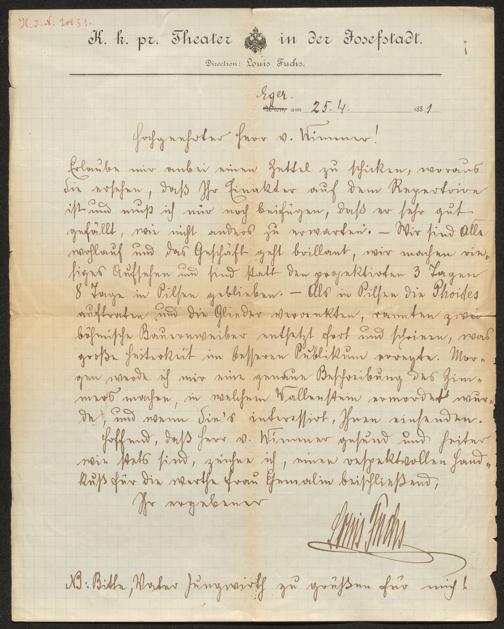 H. J. N. 20031.
K. k. pr. Theater in der Josefstadt.
Direction: Louis Fuchs.
Eger.
Wien, am 25.4. 1881
Hochgeehrter Herr v. Wimmer!
Erlaube mir anbei einen Zettel zu schicken, woraus
Sie ersehen, daß Ihr Einakter auf dem Repertoire
ist und muß ich nur noch beifügen, daß er sehr gut
gefällt, wie nicht anders zu erwarten. – Wir sind Alle
wohlauf und das Geschäft geht brillant, wir machen rie-
siges Aufsehen und sind statt den projektirten 3 Tagen
8 Tage in Pilsen geblieben. – Als in Pilsen die Phoites
auftraten und die Glieder verrenkten, rannten zwei
böhmische Bauernweiber entsetzt fort und schrieen, was
große Heiterkeit im besseren Publikum erregte. Mor-
gen werde ich mir eine genaue Beschreibung des Zim-
mers machen, in welchem Wallenstein ermordet wur-
de, und wenn Sie's interessirt, Ihnen einsenden.
Hoffend, daß Herr v. Wimmer gesund und heiter
wie stets sind, zeichne ich, einen respektvollen Hand-
kuß für die werthe Frau Gemalin beischließend,
Ihr ergebener
Louis Fuchs
NB: Bitte, Vater Jungwirth zu grüßen für mich!